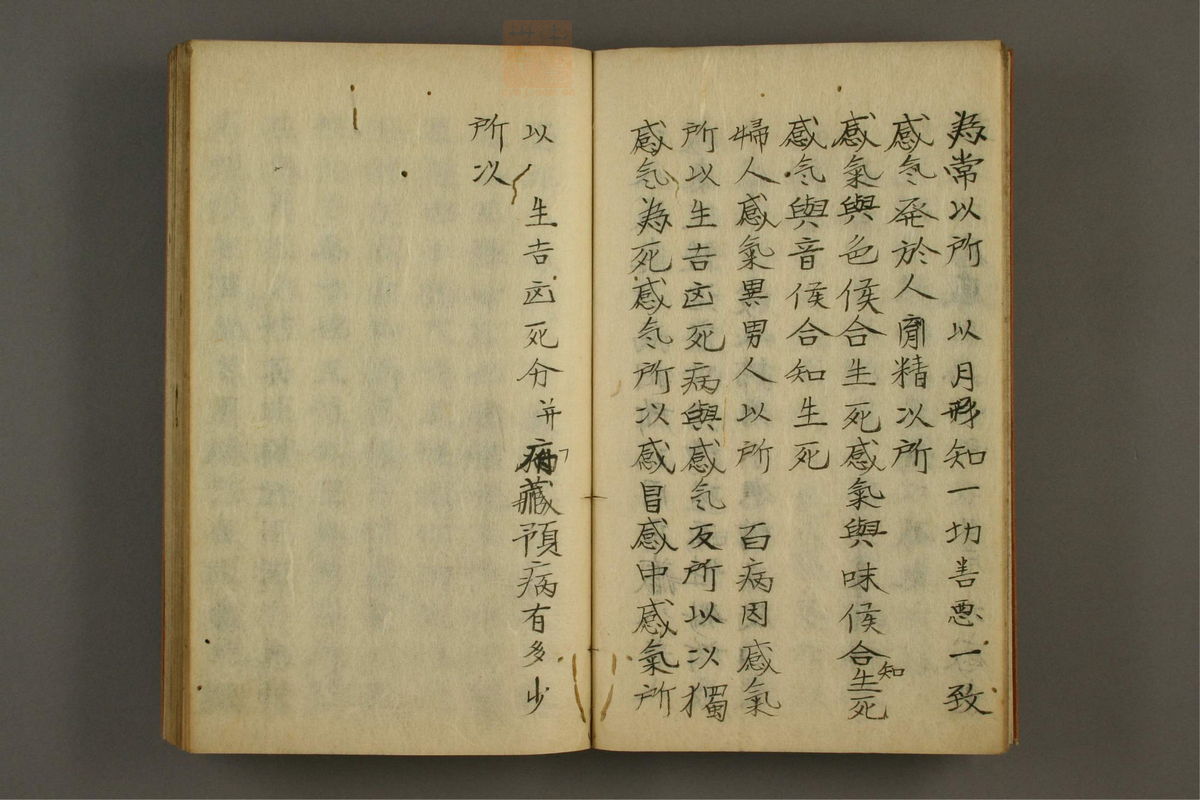 為常以所　以月形知一切善悪一致
感气発於人身精以所
感氣與色候合生死感氣與味候合知生死
感气與音候合知生死
婦人感氣異男人以所　百病因感氣
所以生吉凶死病與感气反所以以獨
感气為死感气所以感冒感中感氣所
以　生吉凶死分并病蔵預病有多少
所以